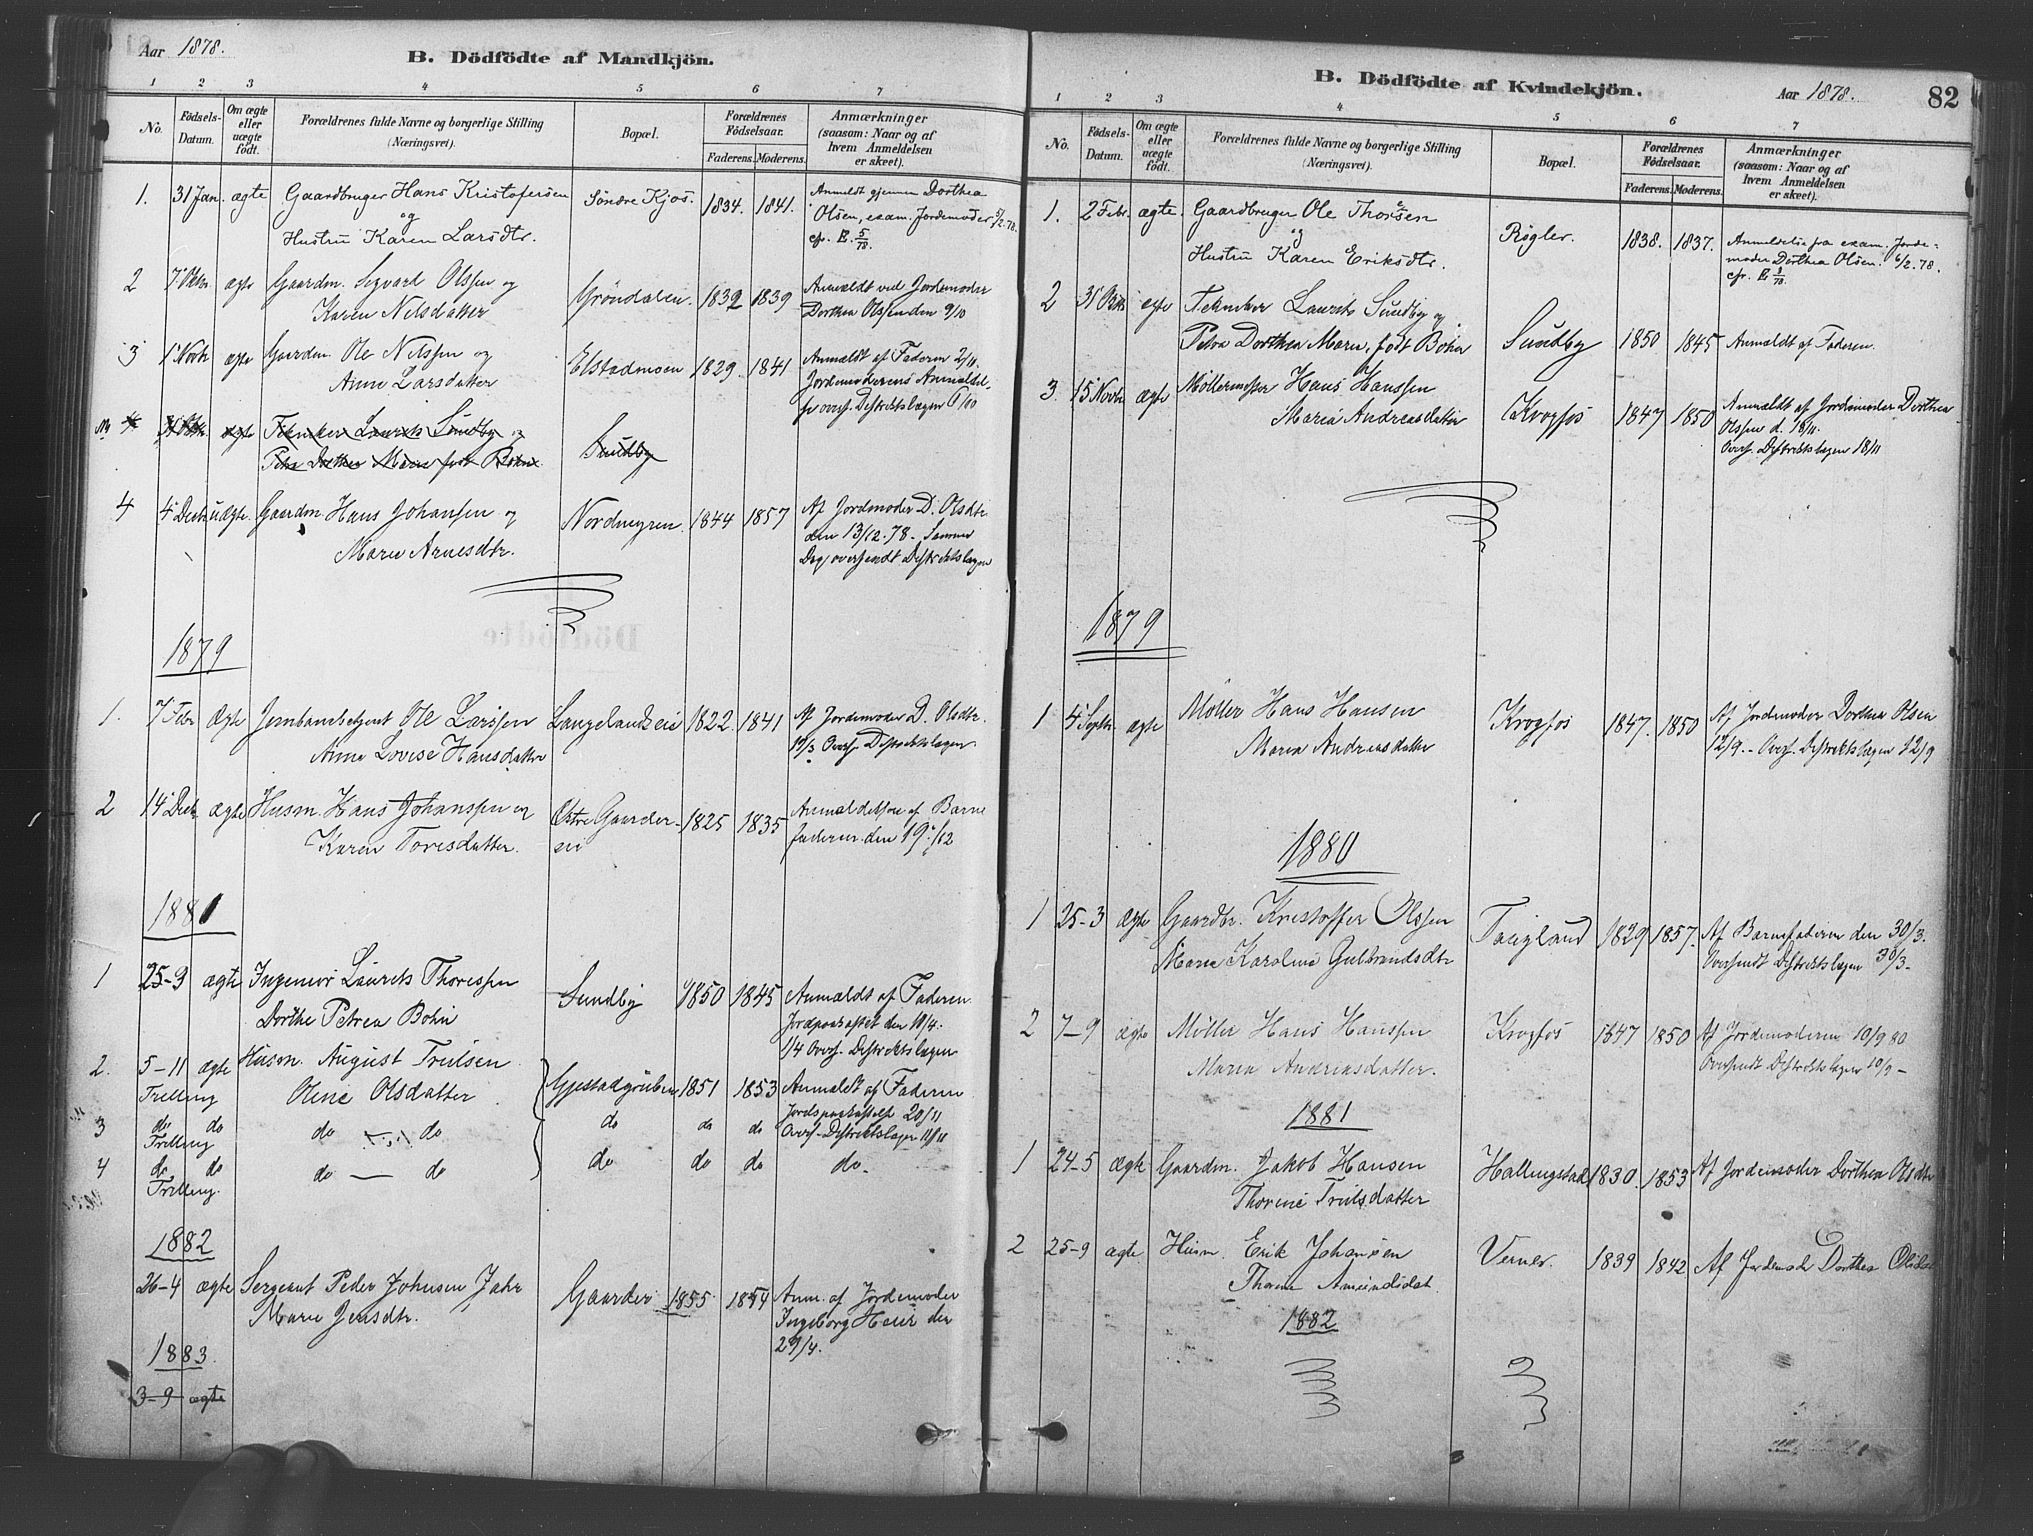 Aar 1878.
B. Dödfödte af Mandkjön.
1 2 3 4 5 6 7
No. Födsels-Datum. Om ægte eller uægte födt. Forældrenes fulde Navne og borgerlige Stilling (Næringsvei). Bopæl. Forældrenes Födselsaar. Faderens. Moderens. Anmærkninger (saasom: Naar og af hvem Anmeldelsen er skeet).
1. 31 Jan. ægte Gaardbruger Hans Kristofersen Söndre Kjos. 1834. 1841. Anmeldt gjennem Dorthea
og Olsen, exam. Jordemoder 5/2.78.
Hustru Karen Larsdtr. cfr. E. 5/78.
2 7 Oktbr. ægte Gaardm. Sigvard Olssen og Gröndalen 1832 1839 Anmældt ved Jordemoder
Karen Nilsdatter Dorthea Olssen den 9/10
3 1 Novbr ægte Gaardm. Ole Nilssen og Elstadmoen 1829. 1841 Anmældt af Faderen 2/11.
Anne Larsdatter Jordemoderens Anmeldel.
overs. Distriktslægen
4 31 Oktbr. ægte Tekniker Laurits Sundby og Sundby
Petra Dorthea Marie født Bohn
4 4 Decb uægte. Gaardm Hans Johansen og Nordmyren. 1844 1857 Af Jordemoder D. Olsdtr.
Marie Arnesdtr. den 13/12.78. Samme
Dag oversendt Distriktslægen
1879
1. 7 Febr ægte Jernbanebetjent Ole Larssen Langelandseie 1822. 1841 Af Jordemoder D. Olsdtr.
Anne Lovise Hansdatter Overs. Distriktslægen
2 14 Decb ægte Husm. Hans Johanssen og Östre Gaarder- 1825 1835 Anmældelse af Barne
Karen Toresdatter. eie faderen den 19/12
1881
1 25-9 ægte Ingeniør Laurits Thoressen Sundby 1850 1845 Anmældt af Faderen.
Dorthe Petrea Bohn Jordpaakastet den 10/4.
1/4 Overs. Distriktslægen
2. 5-11 ægte Husm. August Trulsen Gjestadgruben 1851 1853 Anmældt af Faderen
Trilling Oline Olsdatter Jordspaakastelse 20/11
3 do do do do do do do Overs. Distriktslægen
Trilling
4 do do do — do do do do do.
Trilling.
1882
26-4 ægte Sergeant Peder Johnsen Jahr Gaarder 1855 1854 Anm. af Jordemoder
Marie Jensdtr. Ingeborg Heier den
29/4.
1883.
3-9 ægte
B. Dödfödte af Kvindekjön.
Aar 1878. 82
1 2 3 4 5 6 7
No. Födsels-Datum. Om ægte eller uægte födt. Forældrenes fulde Navne og borgerlige Stilling (Næringsvei). Bopæl. Forældrenes Födselsaar. Faderens. Moderens. Anmærkninger (saasom: Naar og af hvem Anmeldelsen er skeet).
1. 2 Febr. ægte. Gaardbruger Ole Thorsen Røgler. 1838. 1837. Anmeldelse fra exam. Jorde-
og moder Dorthea Olsen. 6/2.78.
Hustru Karen Eriksdtr. cfr. E
2 31 Oktb ægte Tekniker Laurits Sundby og Sundby 1850 1845 Anmældt af Faderen.
Petra Dorthea Marie, født Bohn
3 15 Novbr ægte Møllermester Hans Hanssen Krogfos 1847 1850 Anmældt af Jordemoder Dorthea
Maria Andreasdatter Olssen d. 18/11.
Overs. Distriktslægen 18/11
1879
1 4 Septbr. ægte Møller Hans Hansen Krogfos 1847. 1850 Af Jordemoder Dorthea Olsen
Maria Andreasdatter 12/9. - Overs. Distriktslægen 12/9
1880
1 25-3 ægte Gaardbr. Kristoffer Olssen 1829 1857. Af Barnefaderen den 30/3.
Marie Karoline Gulbrandsdtr Oversendt Distriktslægen 30/3-
2 7-9 ægte Møller Hans Hanssen Krogfos 1847 1850 Af Jordemoderen 10/9 80
Maria Andreasdatter. Oversendt Distriktslægen 10/9-
1881
1 24-5 ægte Gaardm. Jakob Hansen Hallingstad 1830. 1853 Af Jordemoder Dorthea Olsdtr
Thorine Trulsdatter
2 25-9 ægte Husm. Erik Johansen Verner. 1839 1842 Af Jordemod Dorthea Olsdat
Thorine Amundsdat.
1882